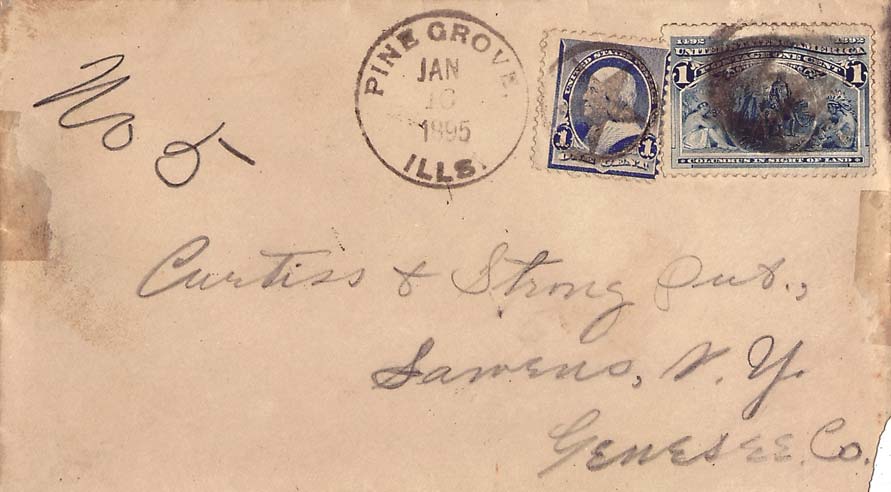 No 5
PINE GROVE.
JAN
16
1895
ILLS.
UNITED STATES
1 1
ONE CENT
1492 1892
UNITED STATES OF AMERICA
1 POSTAGE ONE CENT 1
COLUMBUS IN SIGHT OF LAND
Curtiss & Strong
Sawens, N. Y.
Genesee Co.